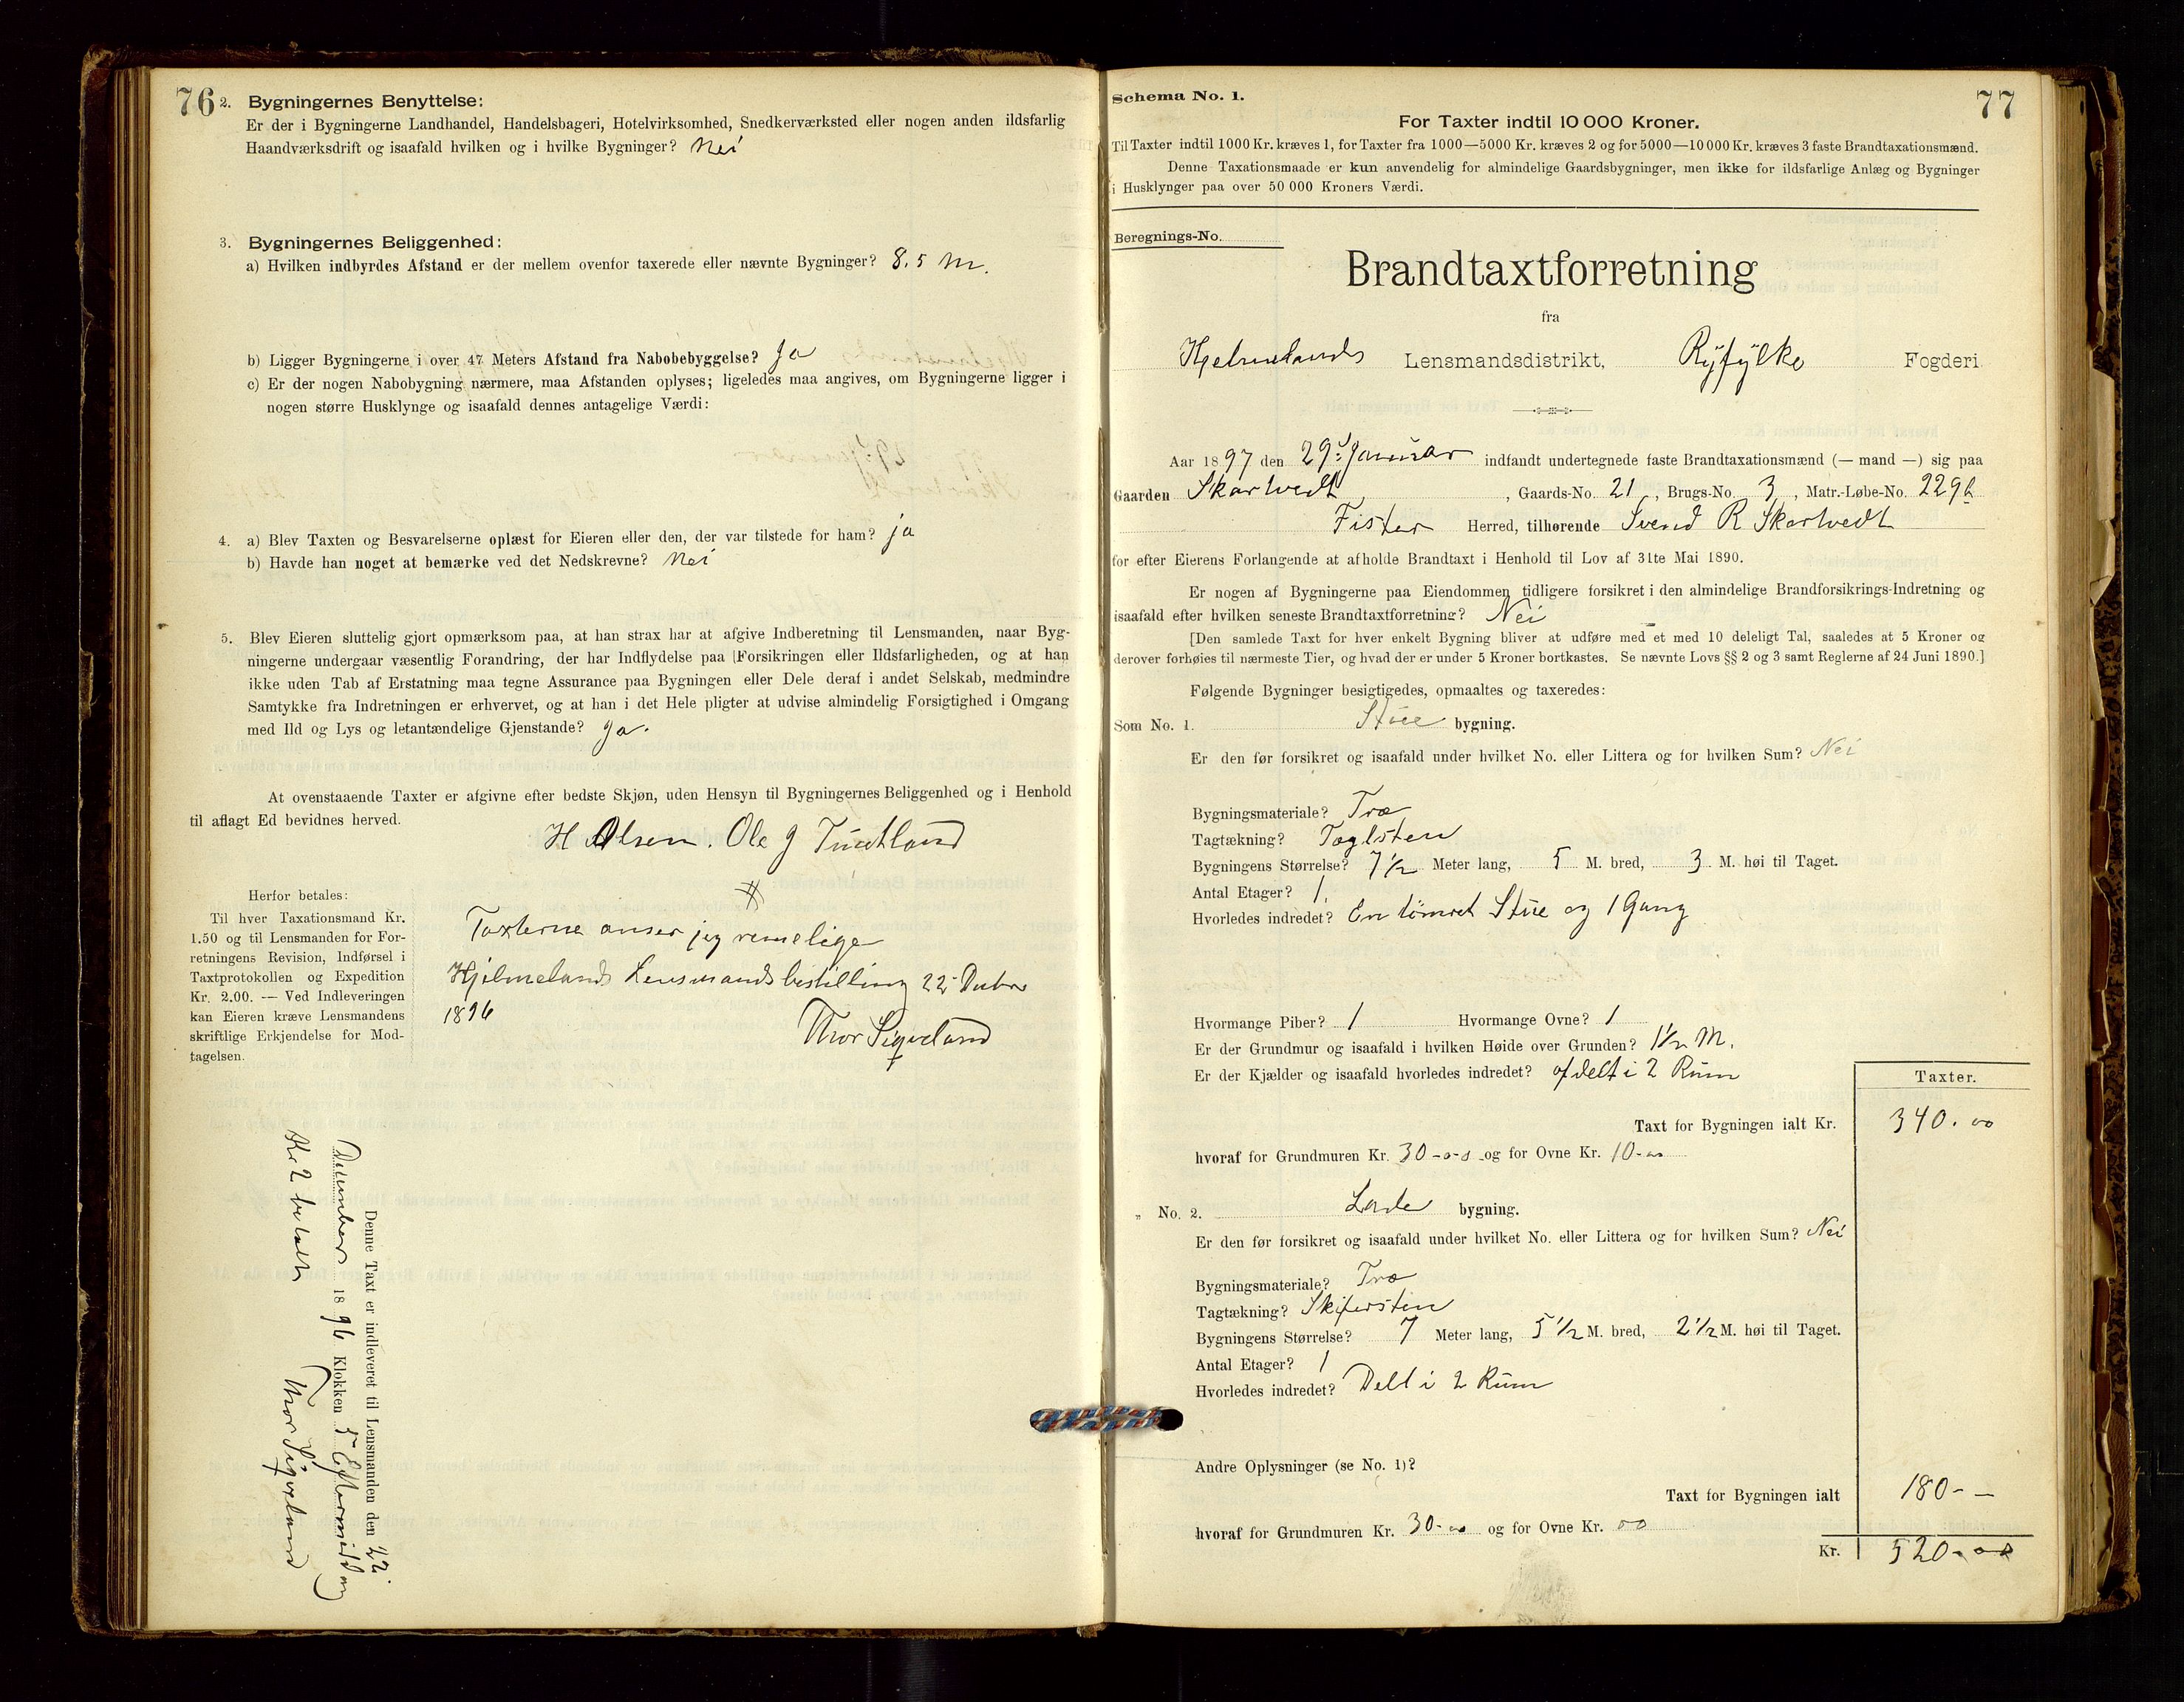 76
2. Bygningernes Benyttelse:
Er der i Bygningerne Landhandel, Handelsbageri, Hotelvirksomhed, Snedkerværksted eller nogen anden ildsfarlig
Haandværksdrift og isaafald hvilken og i hvilke Bygninger? Nei
3. Bygningernes Beliggenhed:
a) Hvilken indbyrdes Afstand er der mellem ovenfor taxerede eller nævnte Bygninger? 8,5 M.
b) Ligger Bygningerne i over 47 Meters Afstand fra Nabobebyggelse? Ja
c) Er der nogen Nabobygning nærmere, maa Afstanden oplyses; ligeledes maa angives, om Bygningerne ligger i
nogen større Husklynge og isaafald dennes antagelige Værdi:
4. a) Blev Taxten og Besvarelserne oplæst for Eieren eller den, der var tilstede for ham? ja
b) Havde han noget at bemærke ved det Nedskrevne? Nei
5. Blev Eieren sluttelig gjort opmærksom paa, at han strax har at afgive Indberetning til Lensmanden, naar Byg-
ningerne undergaar væsentlig Forandring, der har Indflydelse paa Forsikringen eller Ildsfarligheden, og at han
ikke uden Tab af Erstatning maa tegne Assurance paa Bygningen eller Dele deraf i andet Selskab, medmindre
Samtykke fra Indretningen er erhvervet, og at han i det Hele pligter at udvise almindelig Forsigtighed i Omgang
med Ild og Lys og letantændelige Gjenstande? ja.
At ovenstaaende Taxter er afgivne efter bedste Skjøn, uden Hensyn til Bygningernes Beliggenhed og i Henhold
til aflagt Ed bevidnes herved.
H Olsen. Ole J Tuntland
Herfor betales:
Til hver Taxationsmand Kr.
1.50 og til Lensmanden for For-
retningens Revision, Indførsel i
Taxtprotokollen og Expedition
Kr. 2.00. — Ved Indleveringen
kan Eieren kræve Lensmandens
skriftlige Erkjendelse for Mod-
tagelsen.
Taxterne anser jeg rimelige
Hjelmelands Lensmandsbestilling 22 Decbr
1896
Thor Sigveland
Denne Taxt er indleveret til Lensmanden den 22
December 1896 Klokken 5 Eftermiddag
Kr 2 betalt Thor Sigveland
Schema No. 1.
77
For Taxter indtil 10 000 Kroner.
Til Taxter indtil 1000 Kr. kræves 1, for Taxter fra 1000—5000 Kr. kræves 2 og for 5000—10 000 Kr. kræves 3 faste Brandtaxationsmænd.
Denne Taxationsmaade er kun anvendelig for almindelige Gaardsbygninger, men ikke for ildsfarlige Anlæg og Bygninger
i Husklynger paa over 50 000 Kroners Værdi.
Beregnings-No.
Brandtaxtforretning
fra
Hjelmelands Lensmandsdistrikt, Ryfylke Fogderi
Aar 1897 den 29: Januar indfandt undertegnede faste Brandtaxationsmænd (— mand —) sig paa
Gaarden Skartvedt, Gaards-No. 21, Brugs-No. 3, Matr.-Løbe-No. 229b
Fister Herred, tilhørende Svend R Skartvedt
for efter Eierens Forlangende at afholde Brandtaxt i Henhold til Lov af 31te Mai 1890.
Er nogen af Bygningerne paa Eiendommen tidligere forsikret i den almindelige Brandforsikrings-Indretning og
isaafald efter hvilken seneste Brandtaxtforretning? Nei
[Den samlede Taxt for hver enkelt Bygning bliver at udføre med et med 10 deleligt Tal, saaledes at 5 Kroner og
derover forhøies til nærmeste Tier, og hvad der er under 5 Kroner bortkastes. Se nævnte Lovs §§ 2 og 3 samt Reglerne af 24 Juni 1890.]
Følgende Bygninger besigtigedes, opmaaltes og taxeredes:
Som No. 1. Stue bygning.
Er den før forsikret og isaafald under hvilket No. eller Littera og for hvilken Sum? Nei
Bygningsmateriale? Træ
Tagtækning? Taglsten
Bygningens Størrelse? 7 1/2 Meter lang, 5 M. bred, 3 M. høi til Taget.
Antal Etager? 1.
Hvorledes indredet? En tømret Stue og 1 Gang
Hvormange Piber? 1 Hvormange Ovne? 1
Er der Grundmur og isaafald i hvilken Høide over Grunden? 1 1/2 M.
Er der Kjælder og isaafald hvorledes indredet? afdelt i 2 Rum
Taxter.
Taxt for Bygningen ialt Kr. 340.00
hvoraf for Grundmuren Kr. 30-00 og for Ovne Kr. 10-00
„ No. 2. Lade bygning.
Er den før forsikret og isaafald under hvilket No. eller Littera og for hvilken Sum? Nei
Bygningsmateriale? Træ
Tagtækning? Skifersten
Bygningens Størrelse? 7 Meter lang, 5 1/2 M. bred, 2 1/2 M. høi til Taget.
Antal Etager? 1
Hvorledes indredet? Delt i 2 Rum
Andre Oplysninger (se No. 1)?
Taxt for Bygningen ialt 180- —
hvoraf for Grundmuren Kr. 30-00 og for Ovne Kr. 00
Kr. 520-00